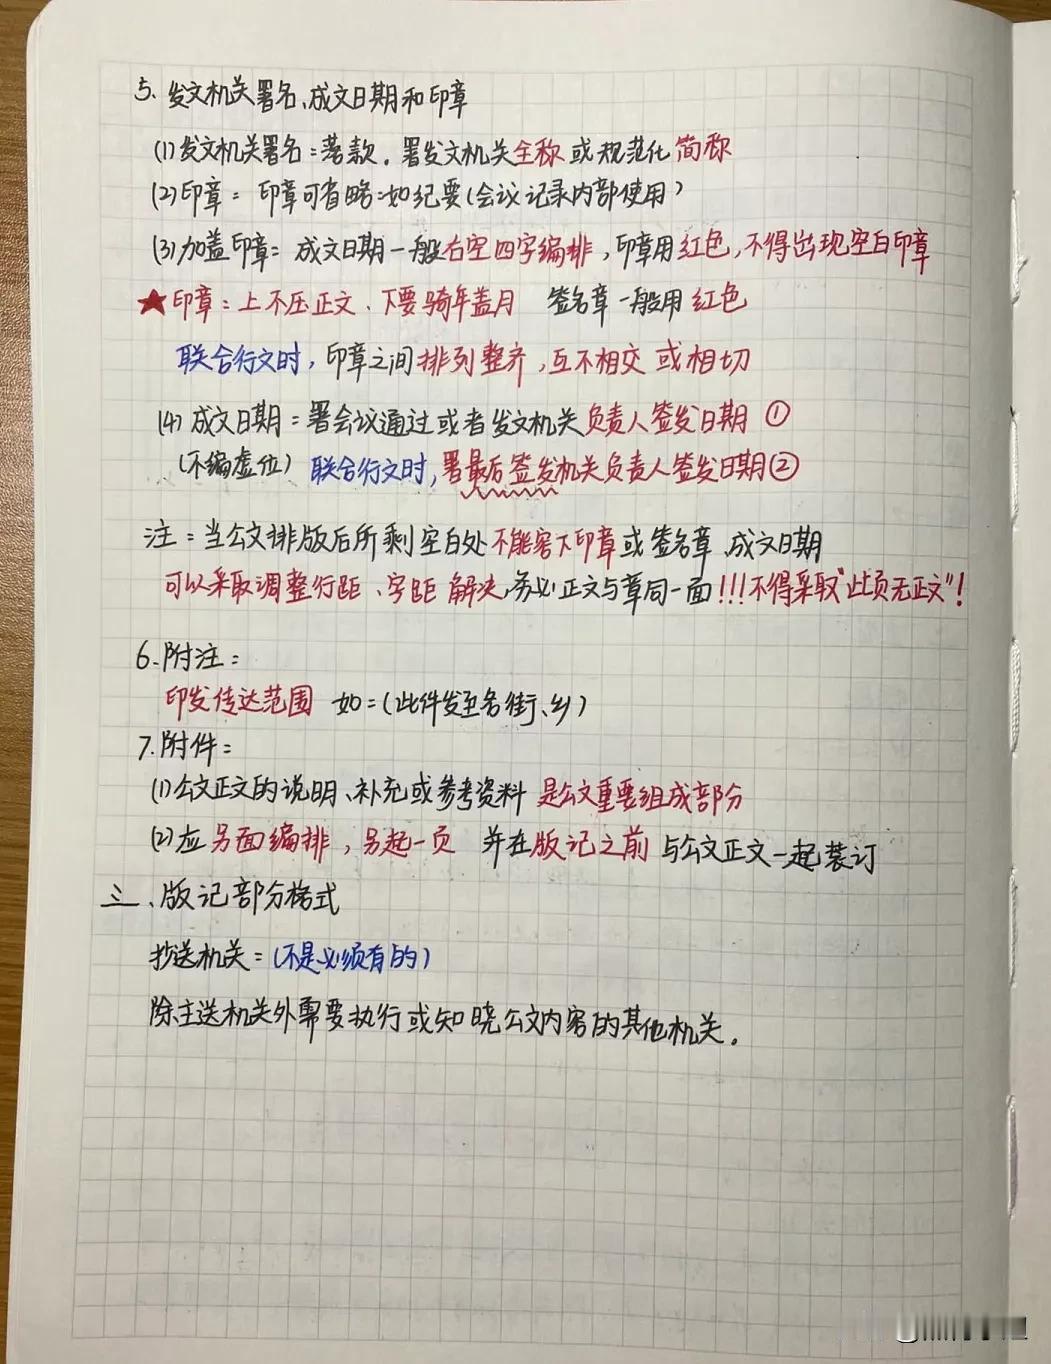 5、发文机关署名、成文日期和印章
(1)发文机关署名:落款。署发文机关全称或规范化简称
(2)印章: 印章可省略:如纪要(会议记录内部使用)
(3)加盖印章: 成文日期一般右空四字编排,印章用红色,不得出现空白印章
★印章:上不压正文、下要骑年盖月 签名章一般用红色
联合行文时,印章之间排列整齐,互不相交或相切
(4)成文日期:署会议通过或者发文机关负责人签发日期 ①
(不编虚位) 联合行文时,署最后签发机关负责人签发日期②
注:当公文排版后所剩空白处不能容下印章或签名章、成文日期
可以采取调整行距、字距解决,务必正文与章同一面!!!不得采取"此页无正文"!
6.附注:
印发传达范围 如:(此件发至各街、乡)
7.附件:
(1)公文正文的说明、补充或参考资料 是公文重要组成部分
(2)应另面编排,另起一页 并在版记之前与公文正文一起装订
三、版记部分格式
抄送机关:(不是必须有的)
除主送机关外需要执行或知晓公文内容的其他机关。